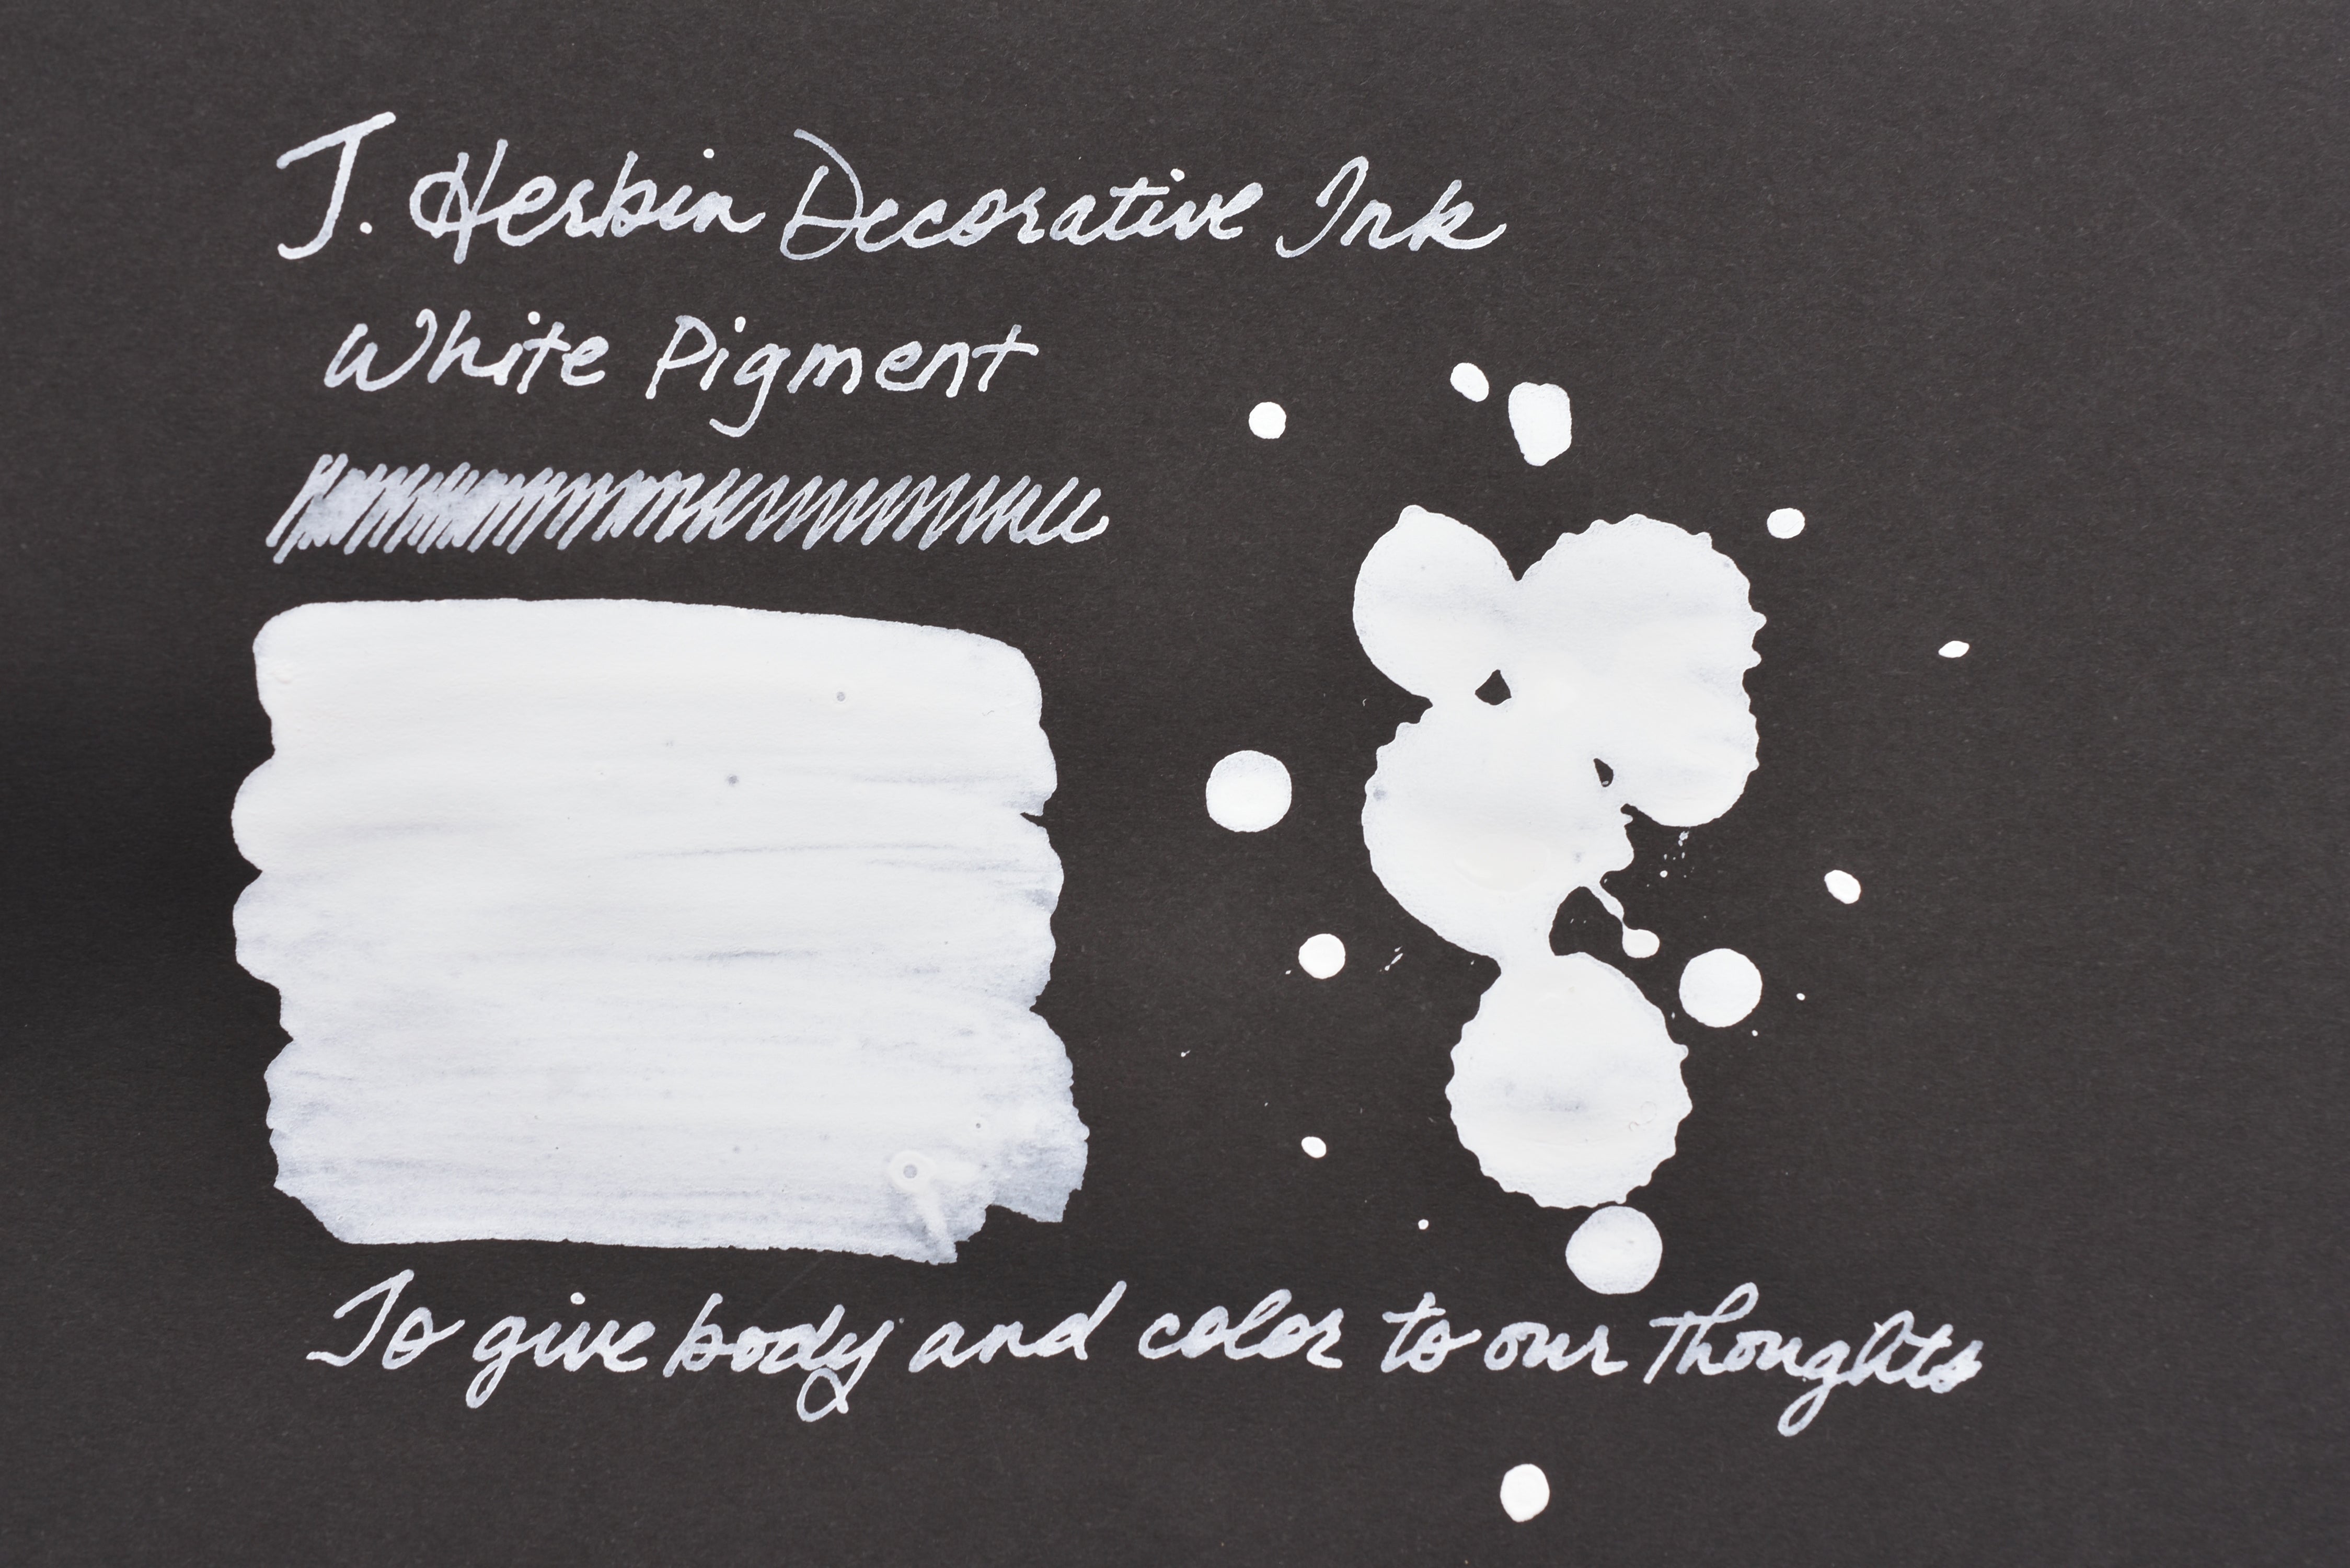 J. Herbin Decorative Ink
White Pigment
To give body and color to our Thoughts